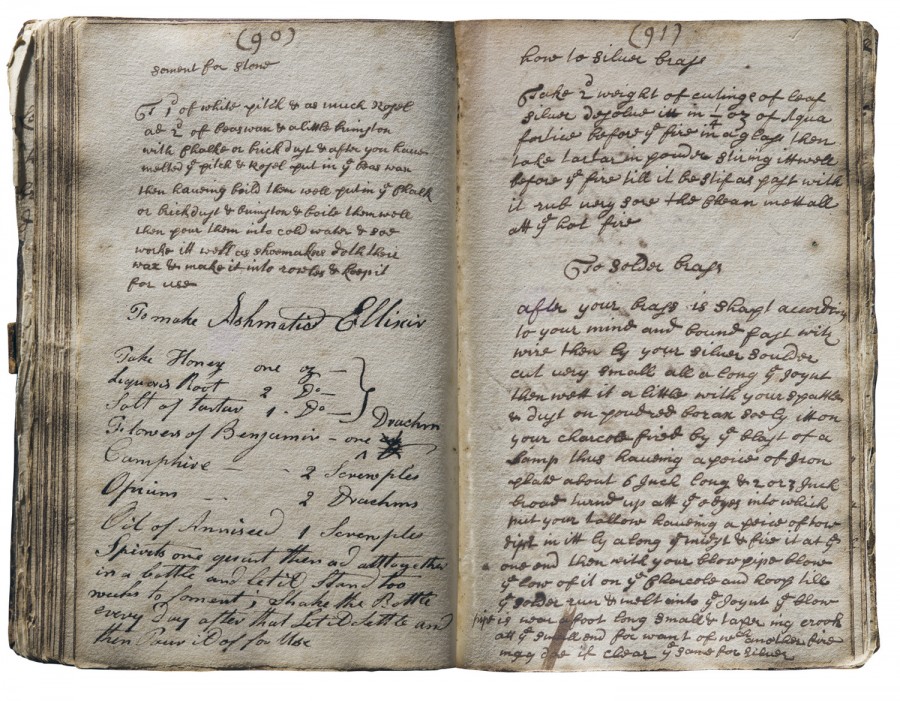 (90)
soment for stone
T 1d of white pitch & as much Rosel
ad 2d of beaswax & a little brimston
with Chalke or brick dust & after you haue
melted ye pitch & Rosel put in ye beas wax
then haueing boild them well put in ye Chalk
or brickdust & brimston & boile them well
then pour them into cold water & soe
worke itt well as shoemakers doth their
wax & make it into rowles & keep it
for use
To make Ashmatick Ellixir
Take Honey one oz —
Liquoris Root 2 Do —
Salt of Tartar 1 - Do —
Flowers of Benjamin - one Drachm
Camphire — - 2 Screuples
Opium — 2 Drachms
Oil of Anniseed 1 Screuples
Spirits one quart then ad alltogether
in a bottle and Let id Stand too
weeks to foment; Shake the Bottle
every Day after that Let id Settle and
then Pour id of for Use
(91)
how to silver brass
Take 2d weight of cutings of leaf
silver desolve itt in 1/2 oz of Aqua
fortice before ye fire in a glass then
take tartar in pouder stiring itt well
before ye fire till it be stif as past with
it rub very sore the Clean mettall
att ye hot fire
To Solder brass
after your brass is shapt according
to your mind and bound fast with
wire then by your silver soulder
cut very small all a long ye Joynt
then wett it a little with your spattle
& dust on poudred borax soe ly itt on
your charcole fired by ye blast of a
Lamp thus haueing a peice of Iron
plate about 6 Inch long & 2 or 3 Inch
broad turnd up att ye edges into which
put your Tallow haueing a peice of tow
dipt in itt by a long ye midst & fire it at ye
one end then with your blow pipe blow
ye low of it on ye Charcole and keep till
ye solder run & melt into ye Joynt ye blow
pipe is near a foot long small & taper my crook
att ye small end for want of wch another fire
may doe if clear ye same for silver